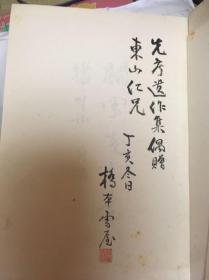 先考遺作集偶贈
東山仁兄
丁亥冬日
橋本雪屋